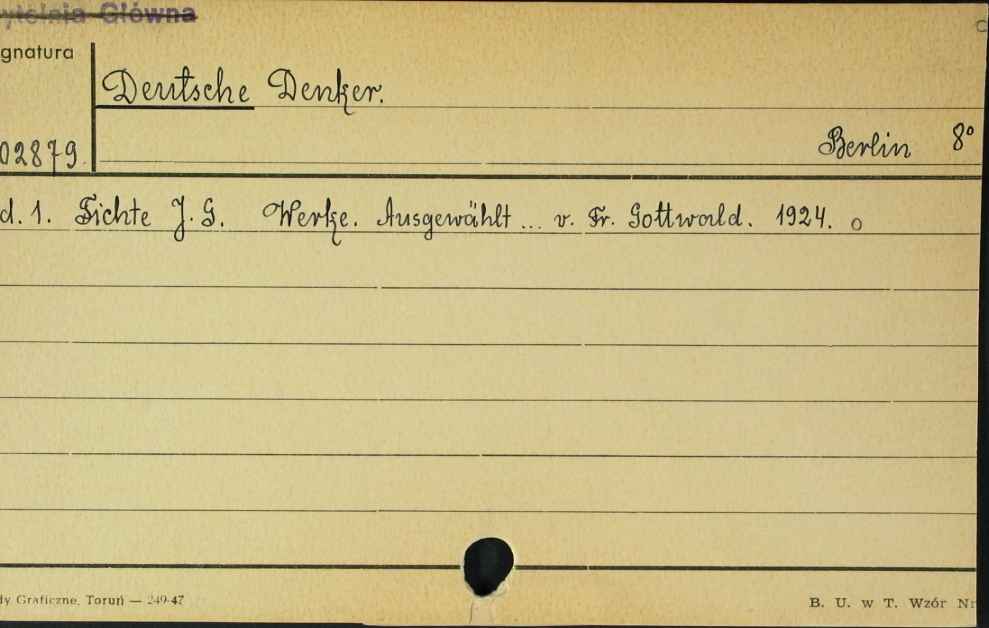 ytelnia Główna
gnatura
Deutsche Denker.
02879.
Berlin 8°
d. 1. Fichte J. G. Werke. Ausgewählt ... v. Fr. Gottwald. 1924. o
dy Graficzne, Toruń — 249-47
B. U. w T. Wzór Nr